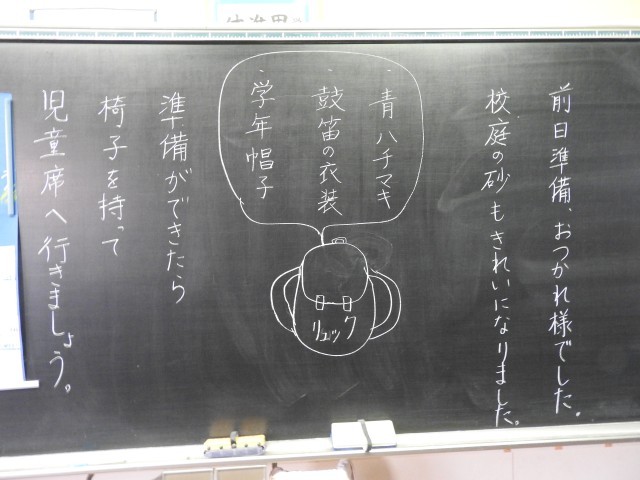 前日準備、おつかれ様でした。
校庭の砂もきれいになりました。
・青ハチマキ
・鼓笛の衣装
・学年帽子
リュック
準備ができたら
椅子を持って
児童席へ行きましょう。